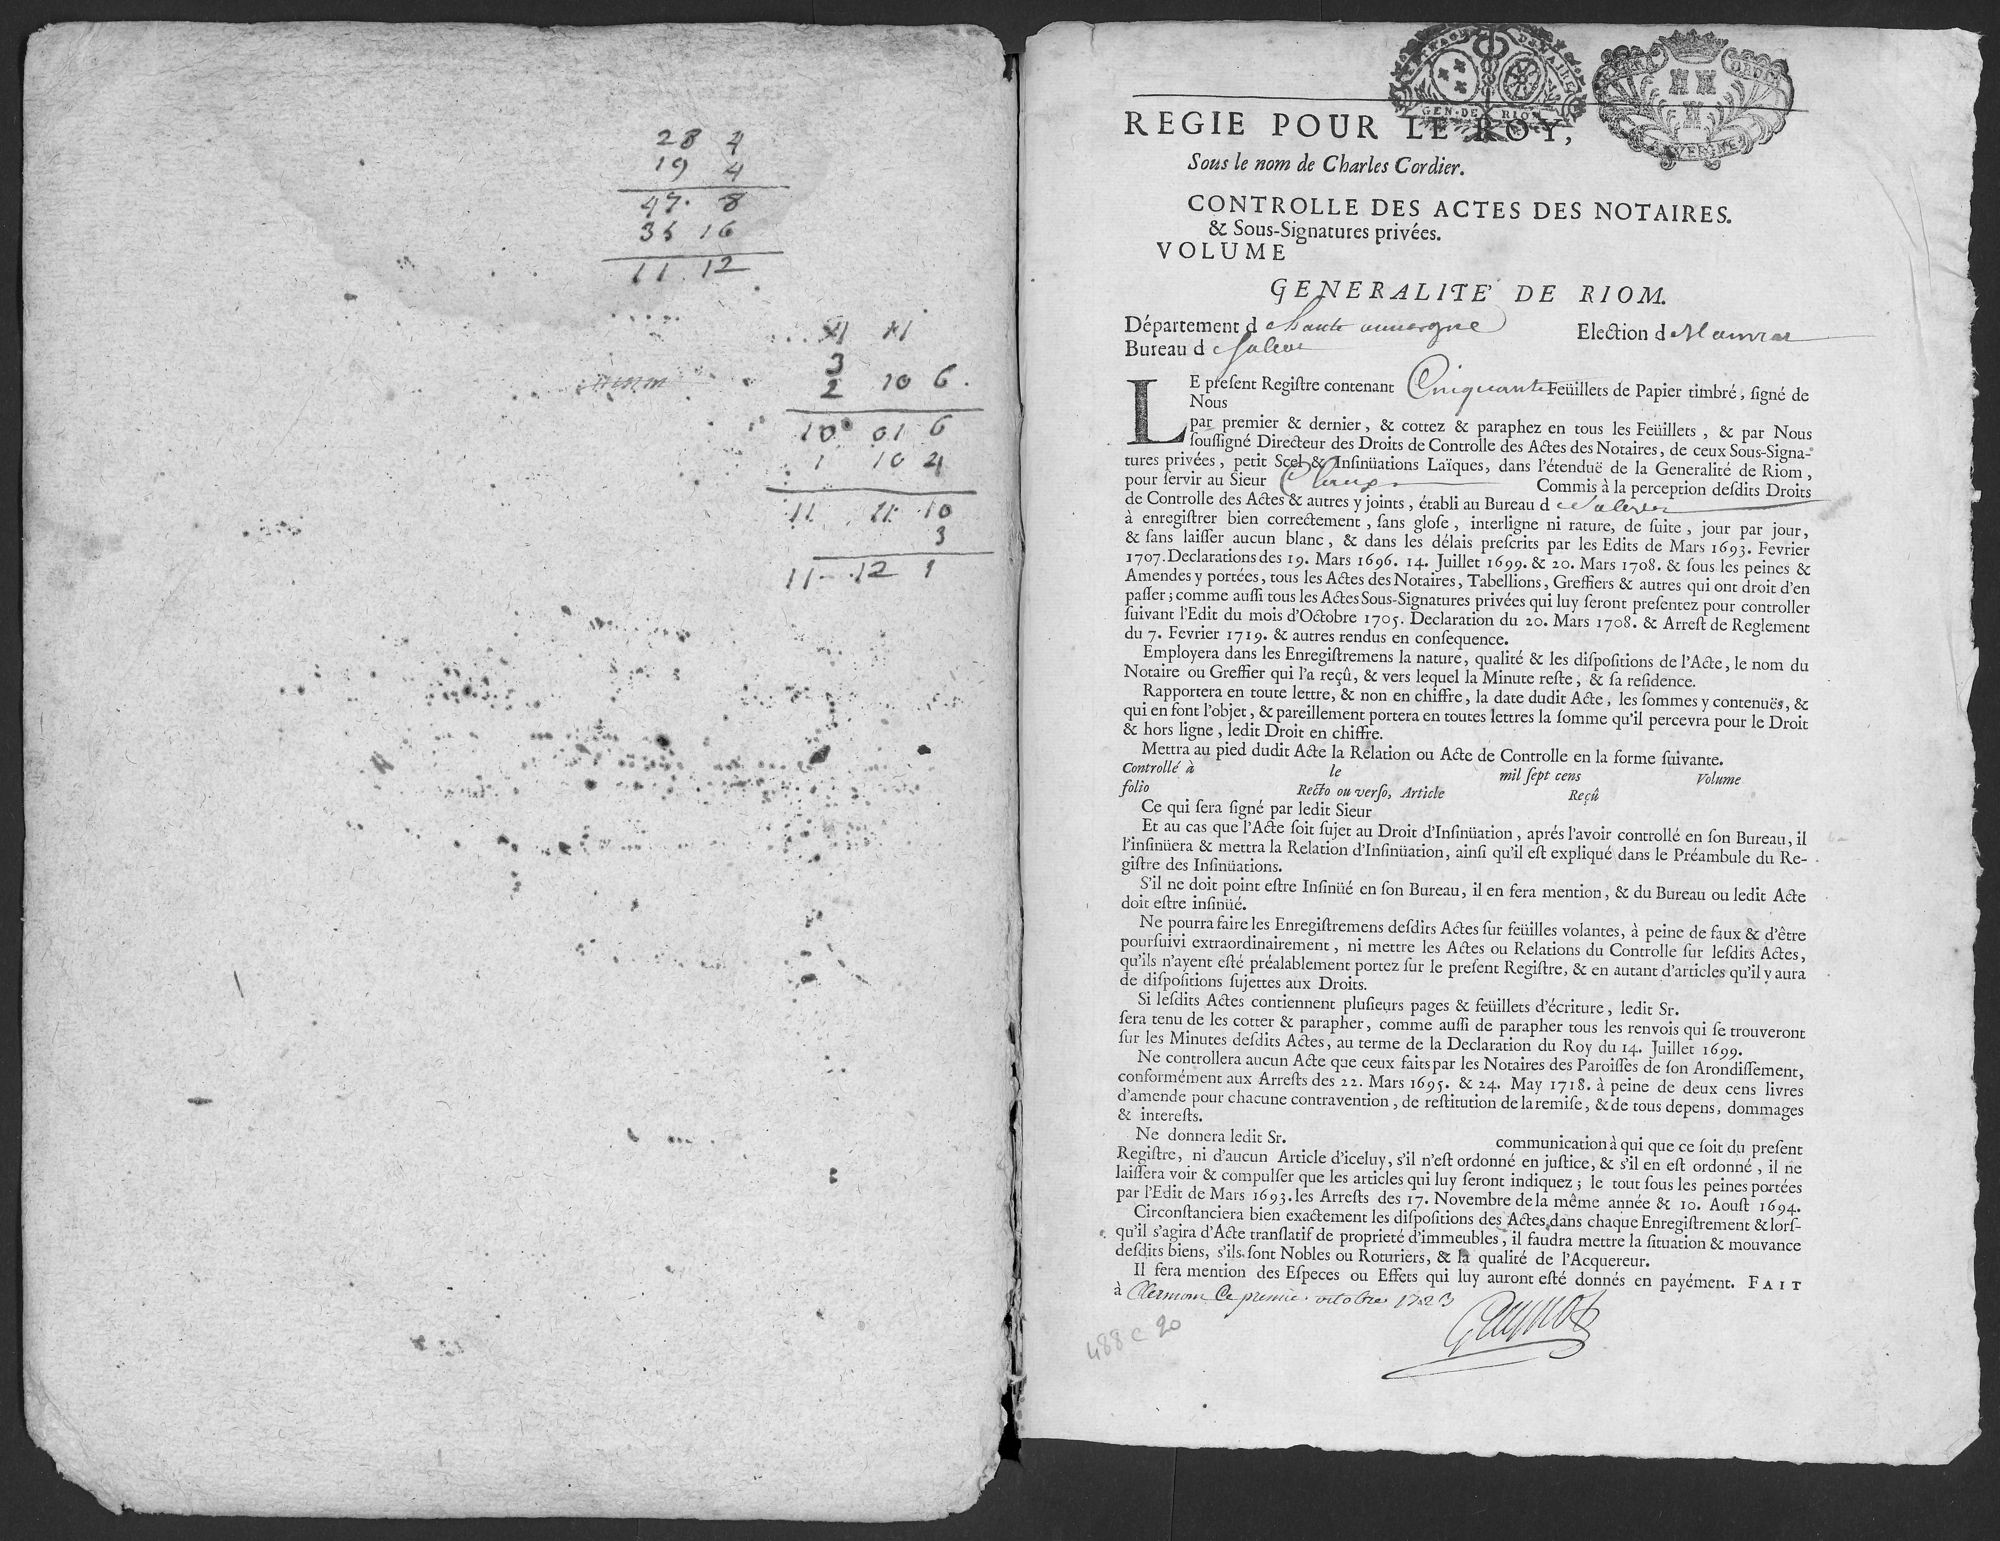 28 4
19 4
47. 8
35 16
11. 12
4 11
3
2 10 6.
10 01 6
1 10 4
11 11 10
3
11 .12 1
GEN. DE RIOM
AUVERGNE
REGIE POUR LE ROY,
Sous le nom de Charles Cordier.
CONTROLLE DES ACTES DES NOTAIRES.
& Sous-Signatures privées.
VOLUME
GENERALITE' DE RIOM.
Département d haute auvergne Election d Mauriac
Bureau d Salers
LE preſent Regiſtre contenant Cinquante Feüillets de Papier timbré, ſigné de
Nous
par premier & dernier, & cottez & paraphez en tous les Feüillets, & par Nous
ſouſſigné Directeur des Droits de Controlle des Actes des Notaires, de ceux Sous-Signa-
tures privées, petit Scel & Inſinüations Laïques, dans l'étenduë de la Generalité de Riom,
pour ſervir au Sieur Commis à la perception deſdits Droits
de Controlle des Actes & autres y joints, établi au Bureau d Salers
à enregiſtrer bien correctement, ſans gloſe, interligne ni rature, de ſuite, jour par jour,
& ſans laiſſer aucun blanc, & dans les délais preſcrits par les Edits de Mars 1693. Fevrier
1707. Declarations des 19. Mars 1696. 14. Juillet 1699. & 20. Mars 1708. & ſous les peines &
Amendes y portées, tous les Actes des Notaires, Tabellions, Greffiers & autres qui ont droit d'en
paſſer; comme auſſi tous les Actes Sous-Signatures privées qui luy ſeront preſentez pour controller
ſuivant l'Edit du mois d'Octobre 1705. Declaration du 20. Mars 1708. & Arreſt de Reglement
du 7. Fevrier 1719. & autres rendus en conſequence.
Employera dans les Enregiſtremens la nature, qualité & les diſpoſitions de l'Acte, le nom du
Notaire ou Greffier qui l'a reçû, & vers lequel la Minute reſte, & ſa reſidence.
Rapportera en toute lettre, & non en chiffre, la date dudit Acte, les ſommes y contenuës, &
qui en font l'objet, & pareillement portera en toutes lettres la ſomme qu'il percevra pour le Droit
& hors ligne, ledit Droit en chiffre.
Mettra au pied dudit Acte la Relation ou Acte de Controlle en la forme ſuivante.
Controllé à le mil ſept cens Volume
folio Recto ou verſo, Article Reçû
Ce qui ſera ſigné par ledit Sieur
Et au cas que l'Acte ſoit ſujet au Droit d'Inſinüation, aprés l'avoir controllé en ſon Bureau, il
l'inſinüera & mettra la Relation d'Inſinüation, ainſi qu'il eſt expliqué dans le Préambule du Re-
giſtre des Inſinüations.
S'il ne doit point eſtre Inſinüé en ſon Bureau, il en fera mention, & du Bureau ou ledit Acte
doit eſtre inſinüé.
Ne pourra faire les Enregiſtremens deſdits Actes ſur feüilles volantes, à peine de faux & d'être
pourſuivi extraordinairement, ni mettre les Actes ou Relations du Controlle ſur leſdits Actes,
qu'ils n'ayent eſté préalablement portez ſur le preſent Regiſtre, & en autant d'articles qu'il y aura
de diſpoſitions ſujettes aux Droits.
Si leſdits Actes contiennent pluſieurs pages & feüillets d'écriture, ledit Sr.
ſera tenu de les cotter & parapher, comme auſſi de parapher tous les renvois qui ſe trouveront
ſur les Minutes deſdits Actes, au terme de la Declaration du Roy du 14. Juillet 1699.
Ne controllera aucun Acte que ceux faits par les Notaires des Paroiſſes de ſon Arondiſſement,
conformément aux Arreſts des 22. Mars 1695. & 24. May 1718. à peine de deux cens livres
d'amende pour chacune contravention, de reſtitution de la remiſe, & de tous depens, dommages
& intereſts.
Ne donnera ledit Sr. communication à qui que ce ſoit du preſent
Regiſtre, ni d'aucun Article d'iceluy, s'il n'eſt ordonné en juſtice, & s'il en eſt ordonné, il ne
laiſſera voir & compulſer que les articles qui luy ſeront indiquez; le tout ſous les peines portées
par l'Edit de Mars 1693. les Arreſts des 17. Novembre de la même année & 10. Aouſt 1694.
Circonſtanciera bien exactement les diſpoſitions des Actes dans chaque Enregiſtrement & lorſ-
qu'il s'agira d'Acte tranſlatif de proprieté d'immeubles, il faudra mettre la ſituation & mouvance
deſdits biens, s'ils ſont Nobles ou Roturiers, & la qualité de l'Acquereur.
Il fera mention des Eſpeces ou Effets qui luy auront eſté donnés en payément. FAIT
à Clermon Ce premier octobre 1723
488 c 90